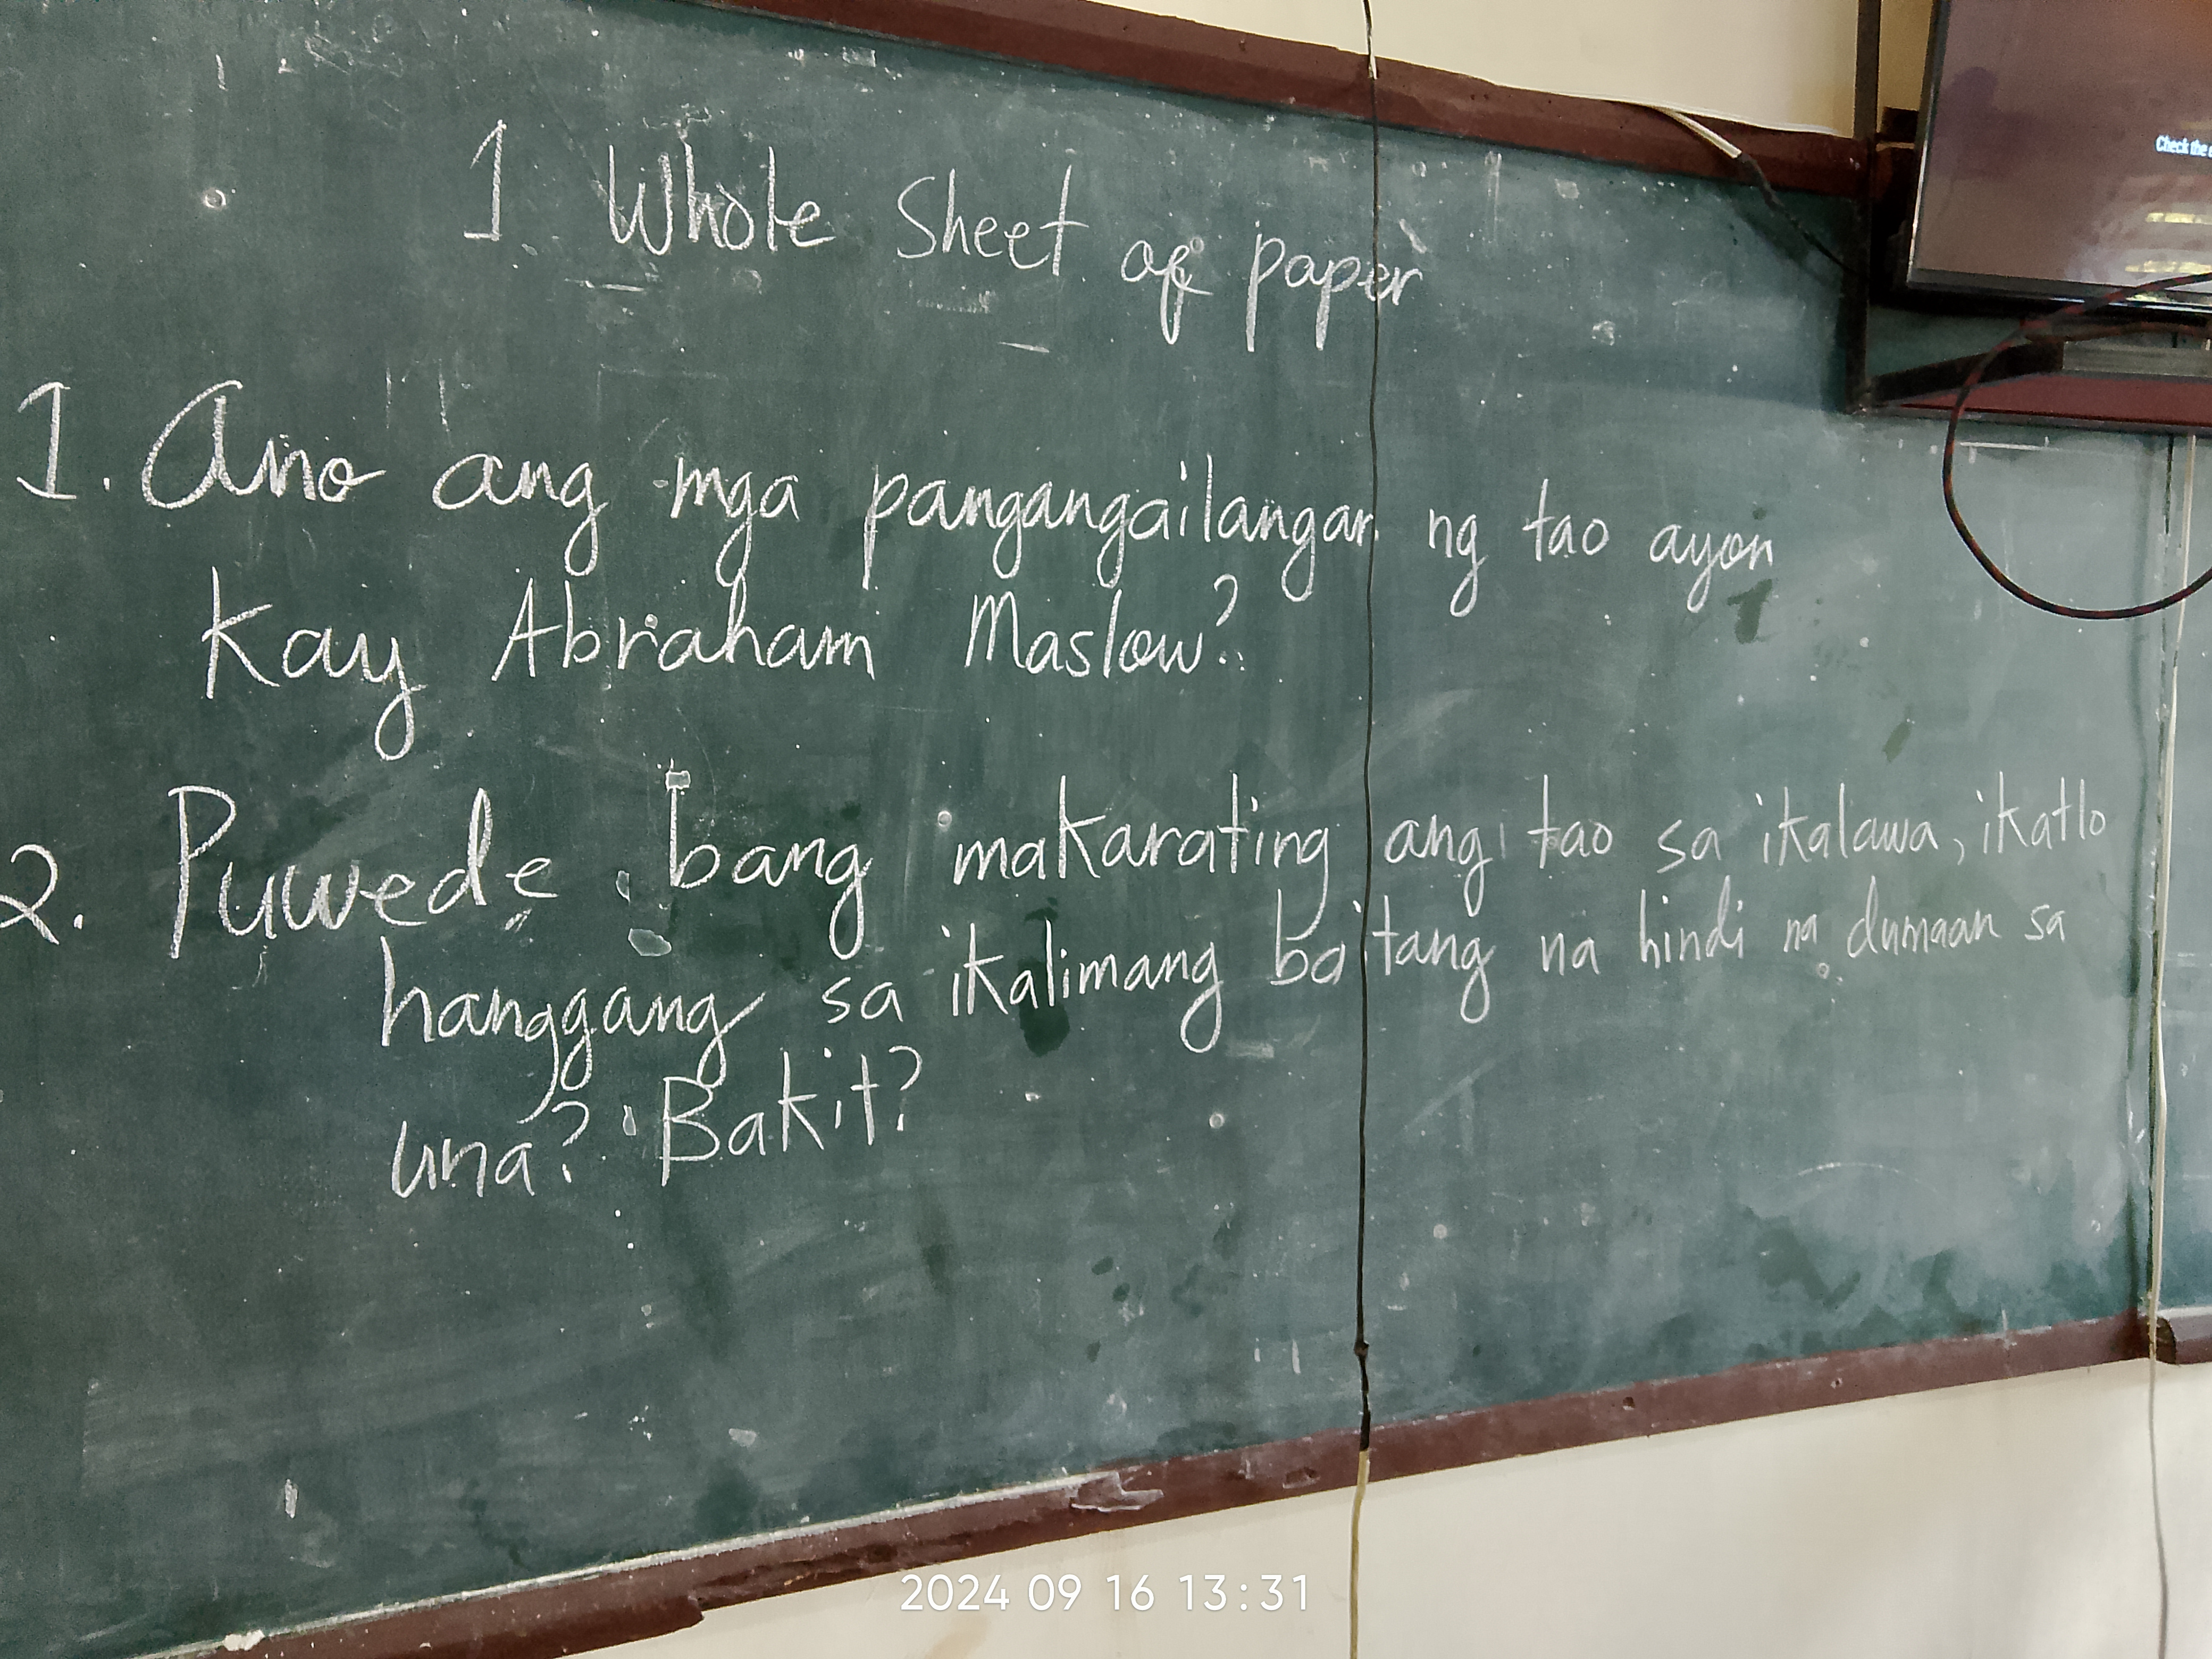 1 Whole Sheet of paper
Check the
1. Ano ang mga pangangailangan ng tao ayon
kay Abraham Maslow?
2. Puwede bang makarating ang tao sa ikalawa, ikatlo
hanggang sa ikalimang baitang na hindi na dumaan sa
una? Bakit?
2024 09 16 13:31